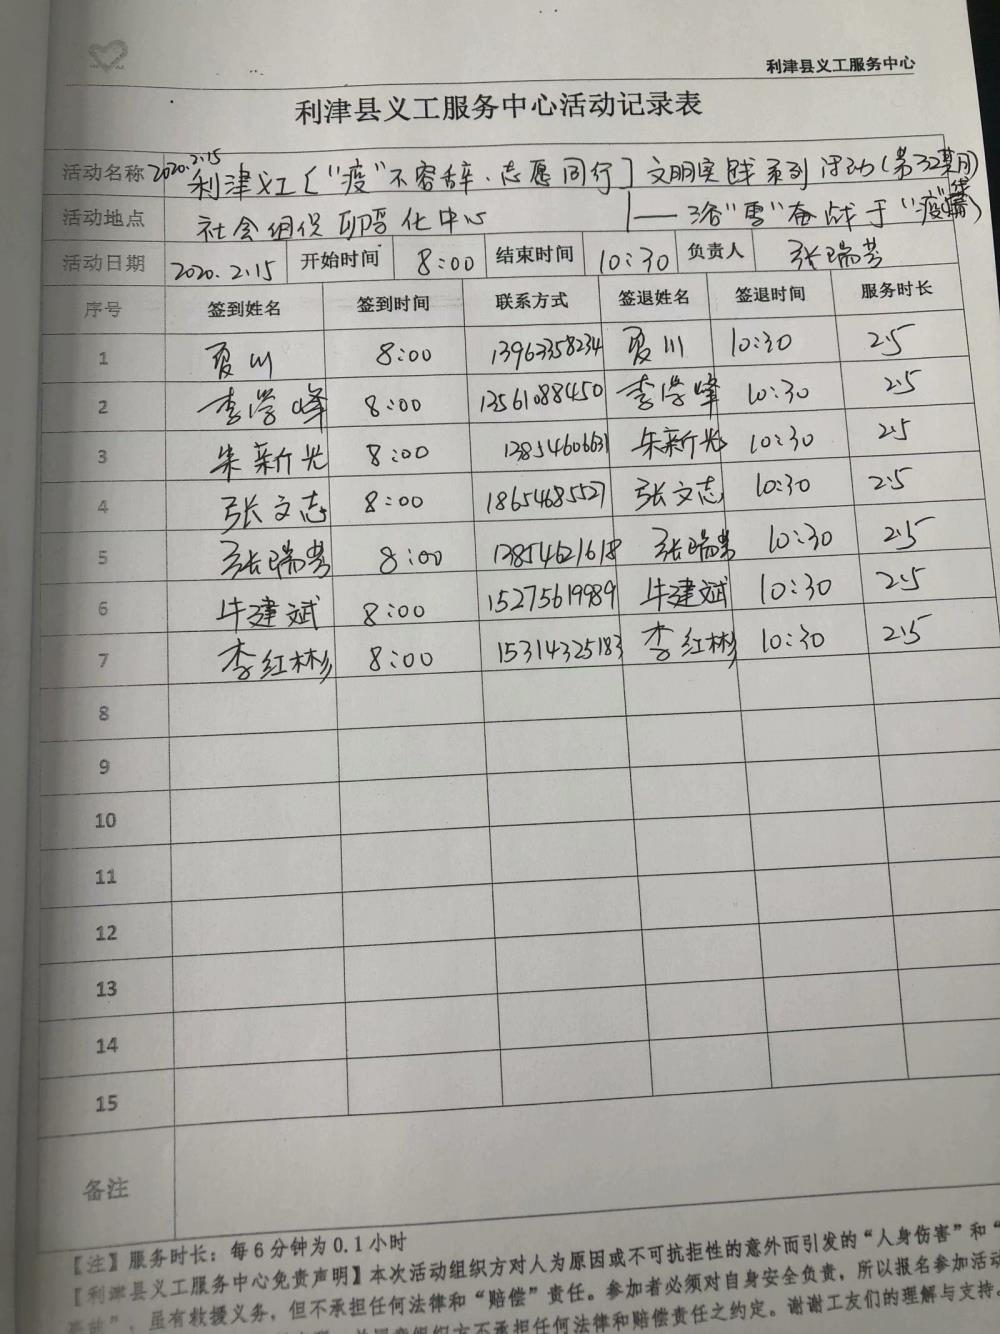 利津县义工服务中心
利津县义工服务中心活动记录表
活动名称 2020.2.15 利津义工〔"疫"不容辞·志愿同行〕文明实践系列活动(第32期)
活动地点 社会组织孵化中心 |——浴"雪"奋战于"疫情"
活动日期 2020.2.15 开始时间 8:00 结束时间 10:30 负责人 张瑞芳
序号 签到姓名 签到时间 联系方式 签退姓名 签退时间 服务时长
1 夏川 8:00 13963358234 夏川 10:30 2.5
2 李学峰 8:00 13561088450 李学峰 10:30 2.5
3 朱新光 8:00 13854606631 朱新光 10:30 2.5
4 张文志 8:00 18654685527 张文志 10:30 2.5
5 张瑞芳 8:00 13854621618 张瑞芳 10:30 2.5
6 牛建斌 8:00 15275619989 牛建斌 10:30 2.5
7 李红彬 8:00 15314325183 李红彬 10:30 2.5
8
9
10
11
12
13
14
15
备注
【注】服务时长：每6分钟为0.1小时
【利津县义工服务中心免责声明】本次活动组织方对人为原因或不可抗拒性的意外而引发的“人身伤害”和“
”，虽有救援义务，但不承担任何法律和“赔偿”责任。参加者必须对自身安全负责，所以报名参加活动
组织方不承担任何法律和赔偿责任之约定。谢谢工友们的理解与支持。